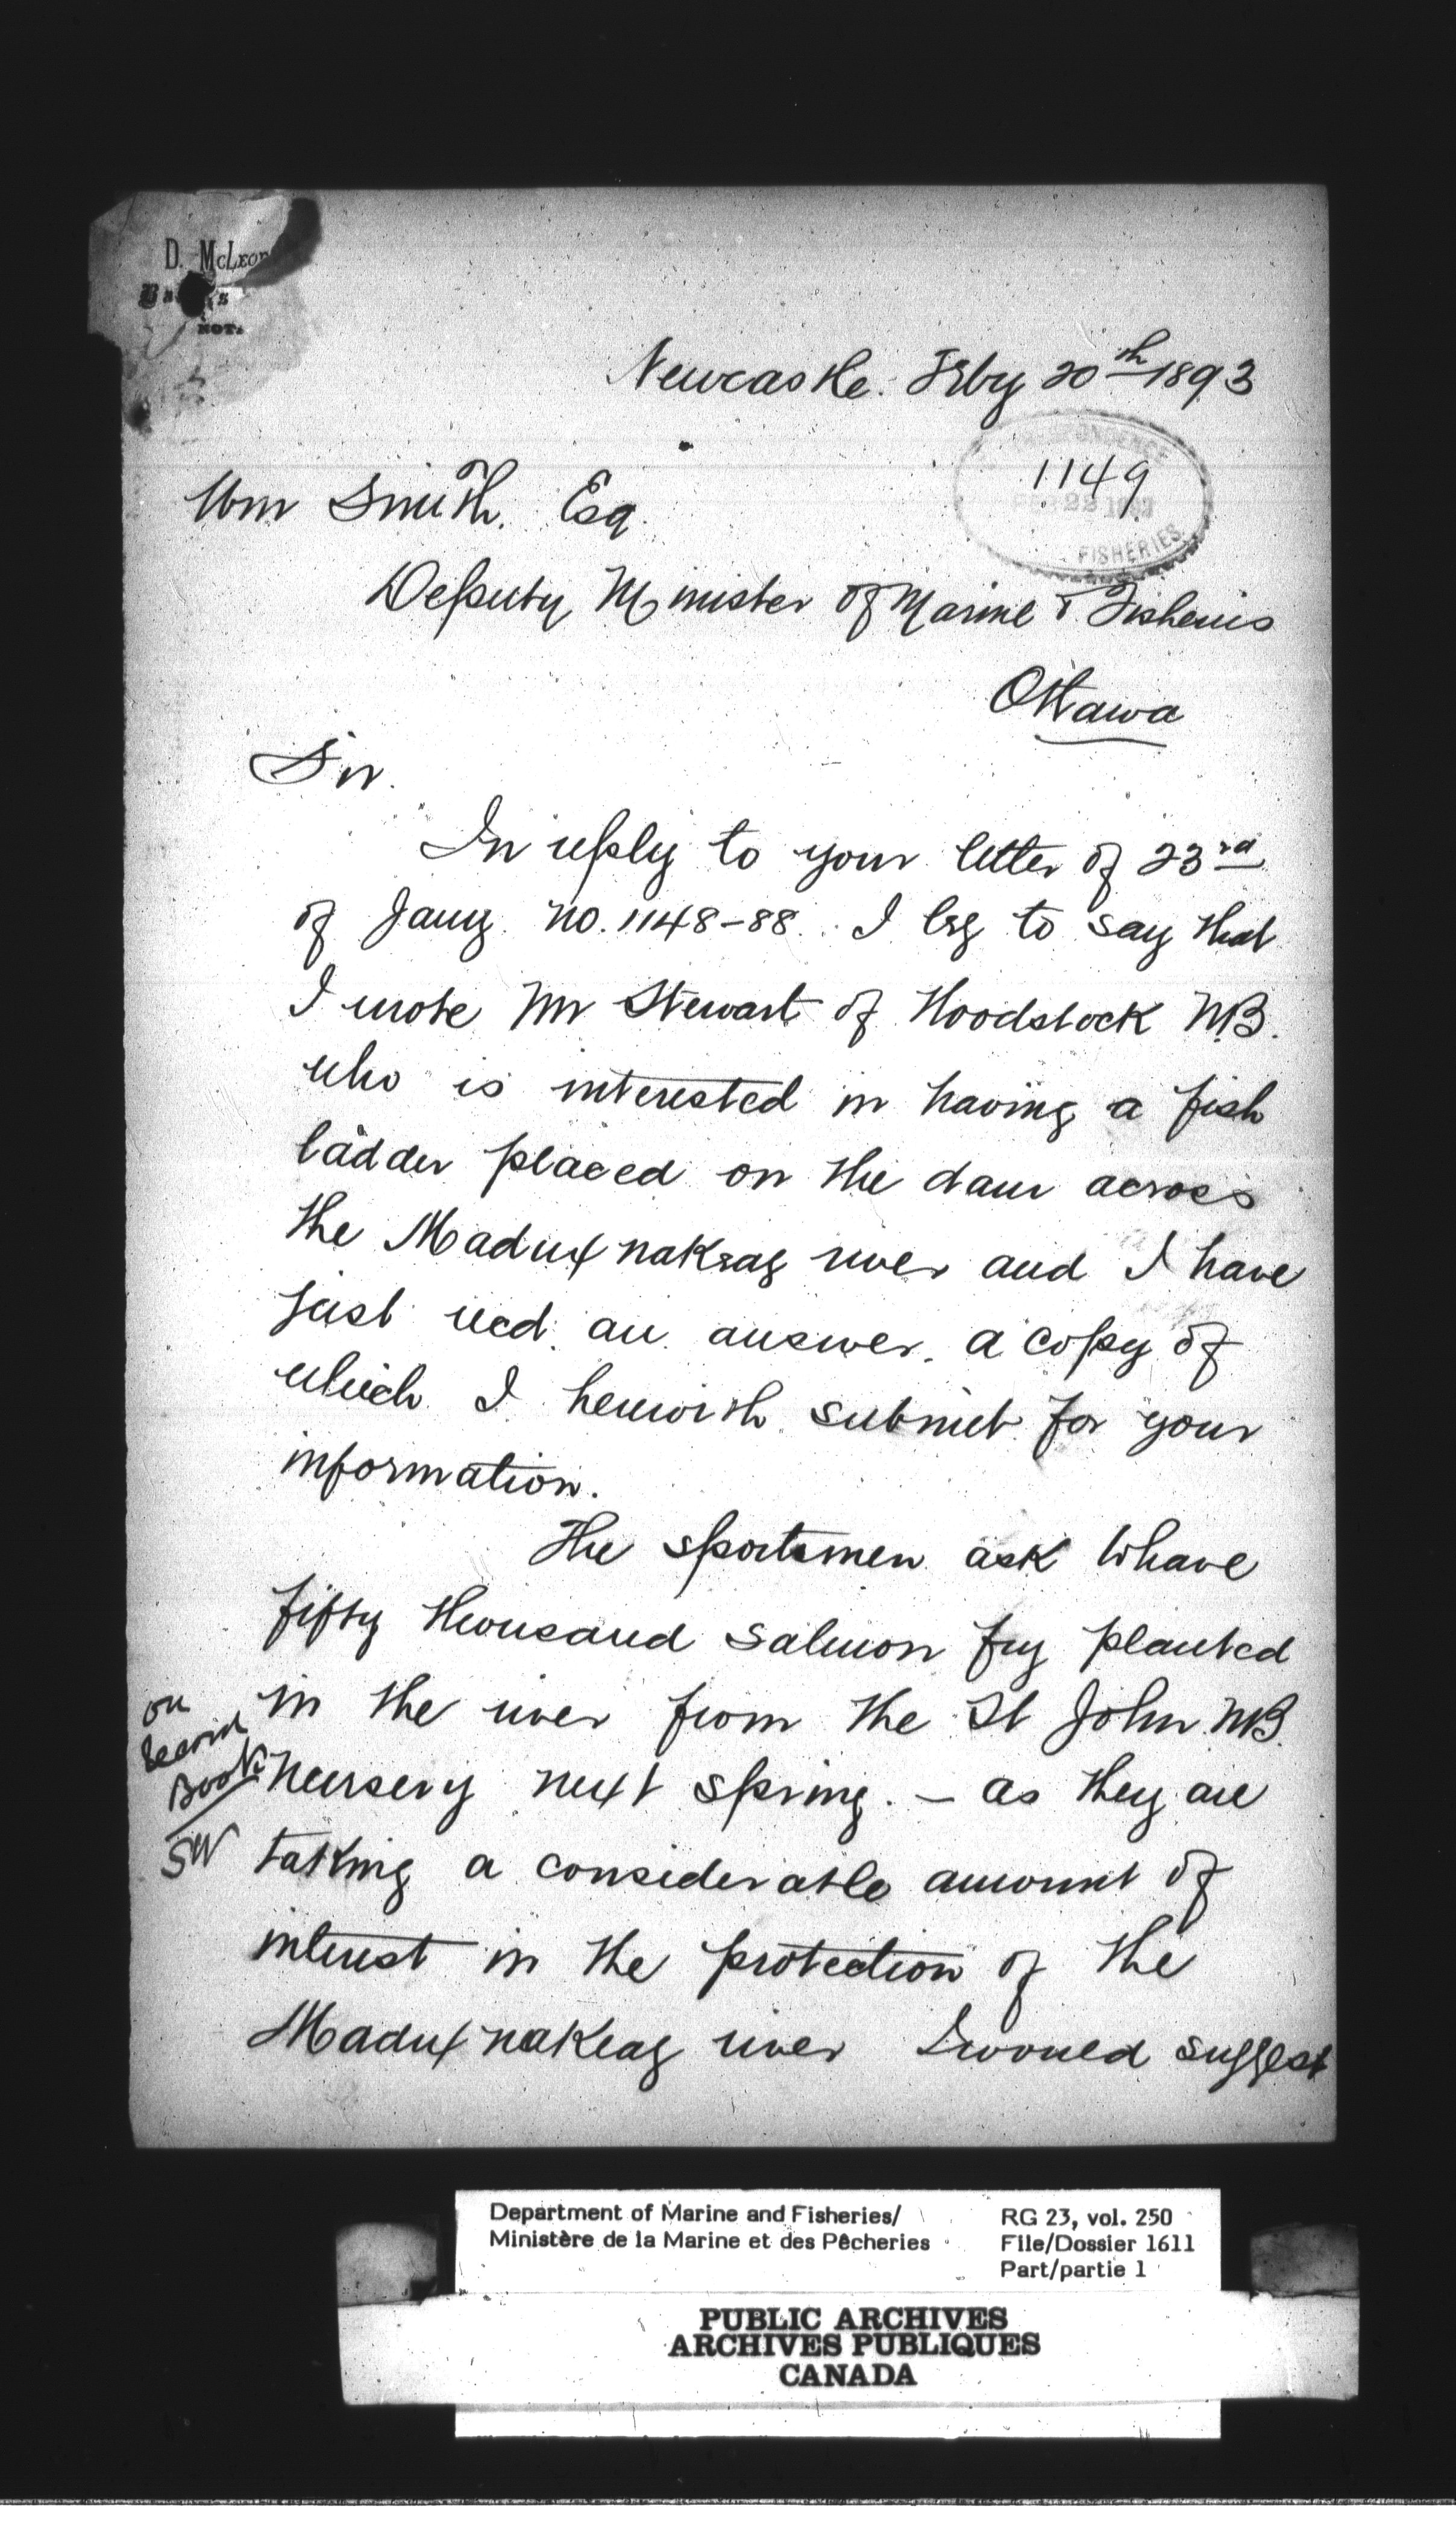 D. McLeo
NOT.
Newcastle. Feby 20th 1893
CORRESPONDENCE
1149
FEB 22 1893
FISHERIES
Wm Smith. Esq.
Deputy Minister of Marine & Fisheries
Ottawa
Sir.
In reply to your letter of 23rd
of Jany. no. 1148-88. I beg to say that
I wrote Mr Stewart of Woodstock N.B.
who is interested in having a fish
ladder placed on the dam across
the Maduxnakeag river and I have
just recd. an answer. a copy of
which I herewith submit for your
information.
The sportsmen ask to have
fifty thousand salmon fry planted
in the river from the St John N.B.
Nursery next spring. - as they are
taking a considerable amount of
interest in the protection of the
Maduxnakeag river I would suggest
on
Book
SW
Department of Marine and Fisheries/
Ministère de la Marine et des Pêcheries
RG 23, vol. 250
File/Dossier 1611
Part/partie 1
PUBLIC ARCHIVES
ARCHIVES PUBLIQUES
CANADA